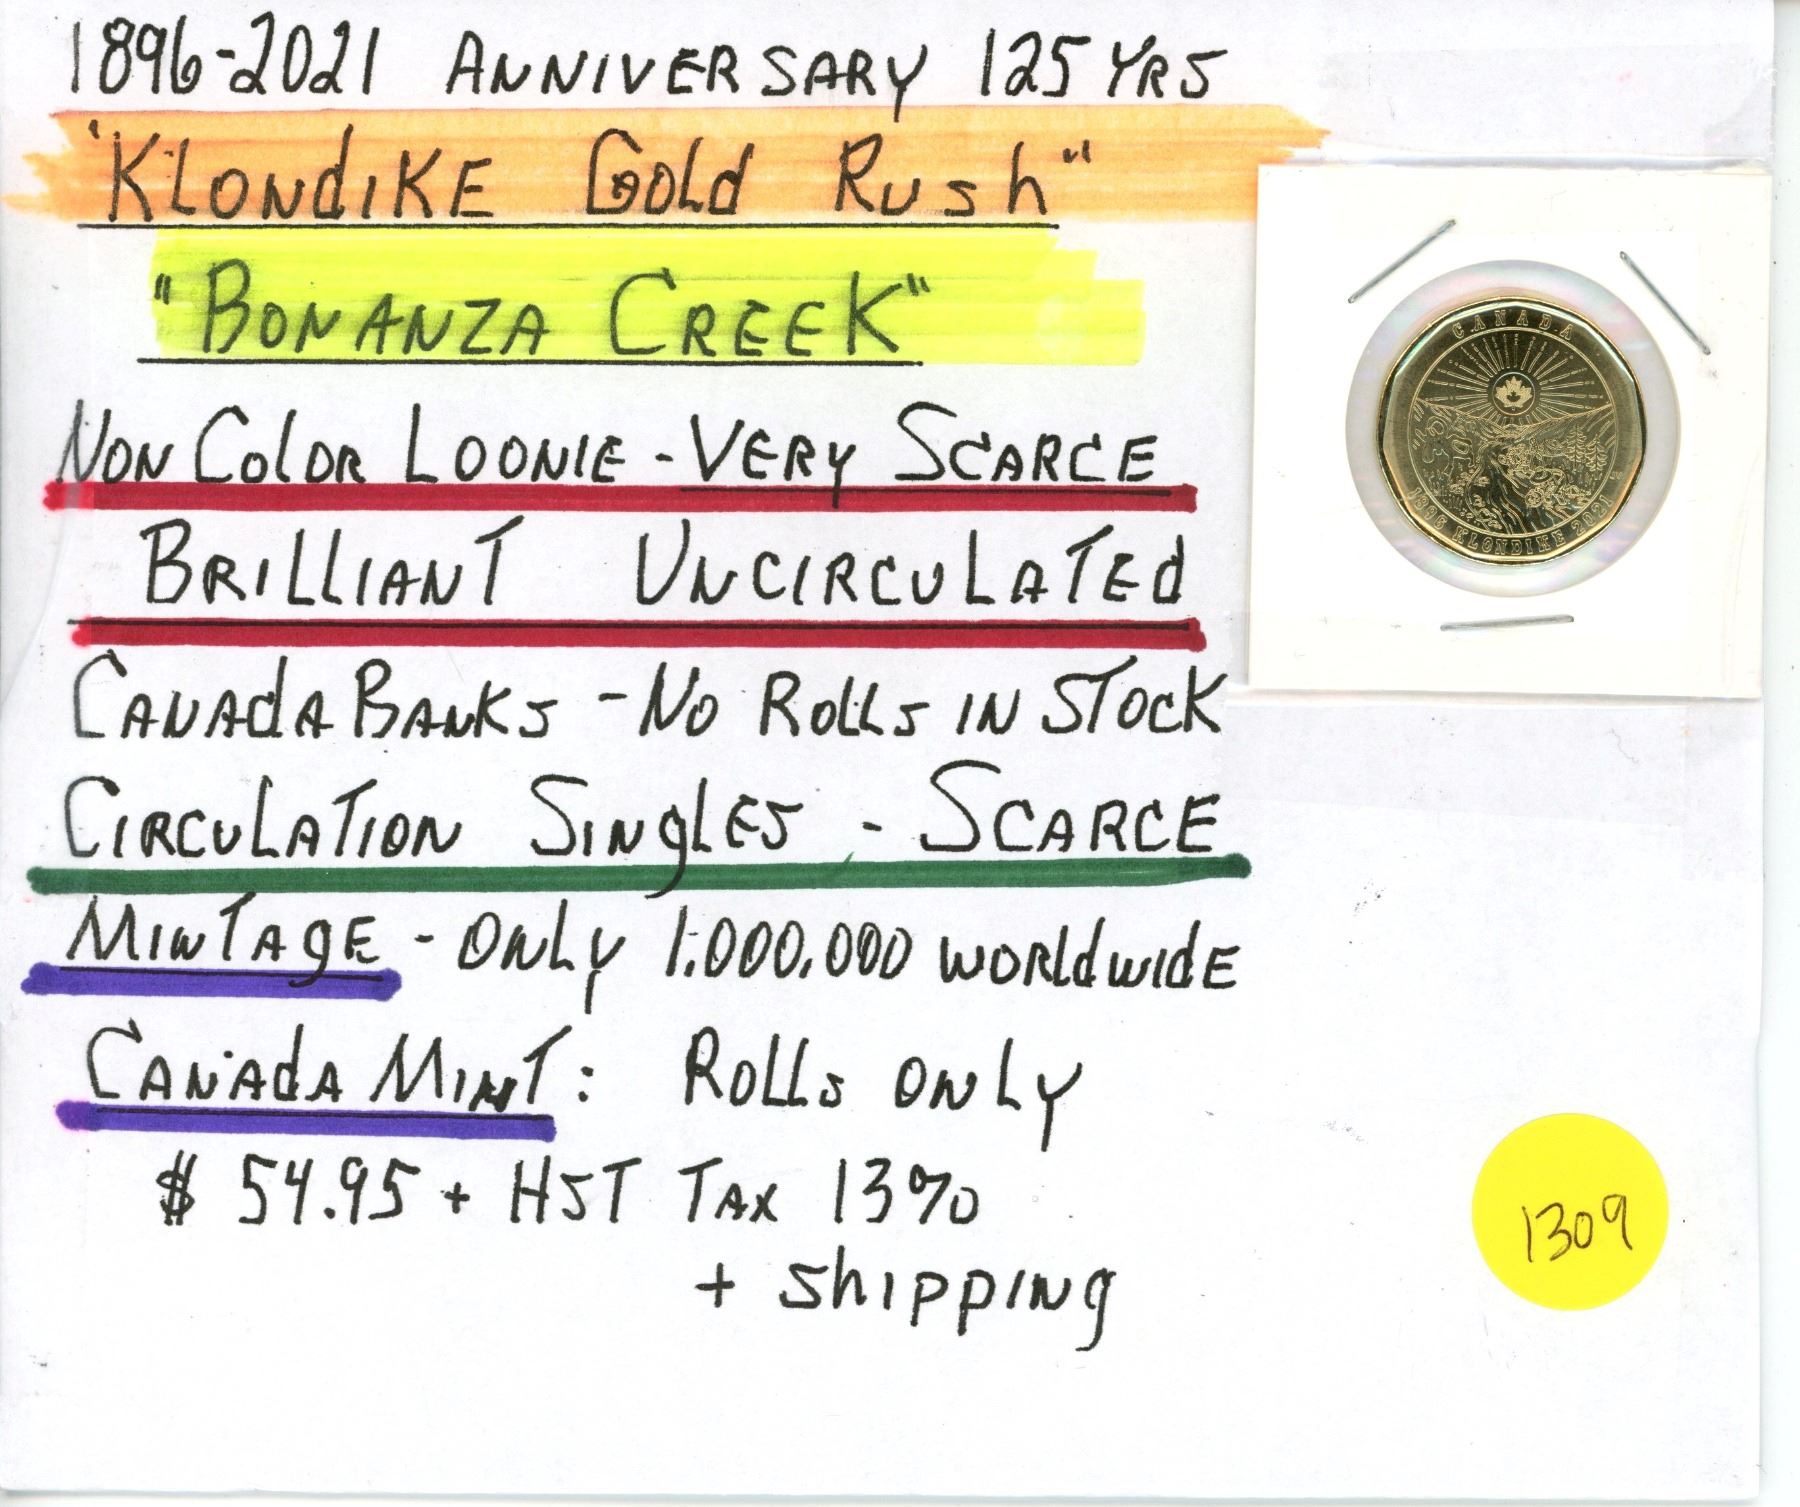 1896-2021 ANNIVERSARY 125 YRS
"KLONdIKE GOLd RUSh"
"BONANZA CREEK"
NON COLOR LOONIE - VERY SCARCE
BRILLIANT UNCIRCULATEd
CANAdA BANKS - NO ROLLS IN STOCK
CIRCULATION SINgLES - SCARCE
MINTAgE - ONLY 1.000.000 WORLdWIdE
CANAdA MINT: ROLLS ONLY
$ 54.95 + HST TAX 13%
+ ShIPPINg
CANADA
1896 KLONDIKE 2021
1309